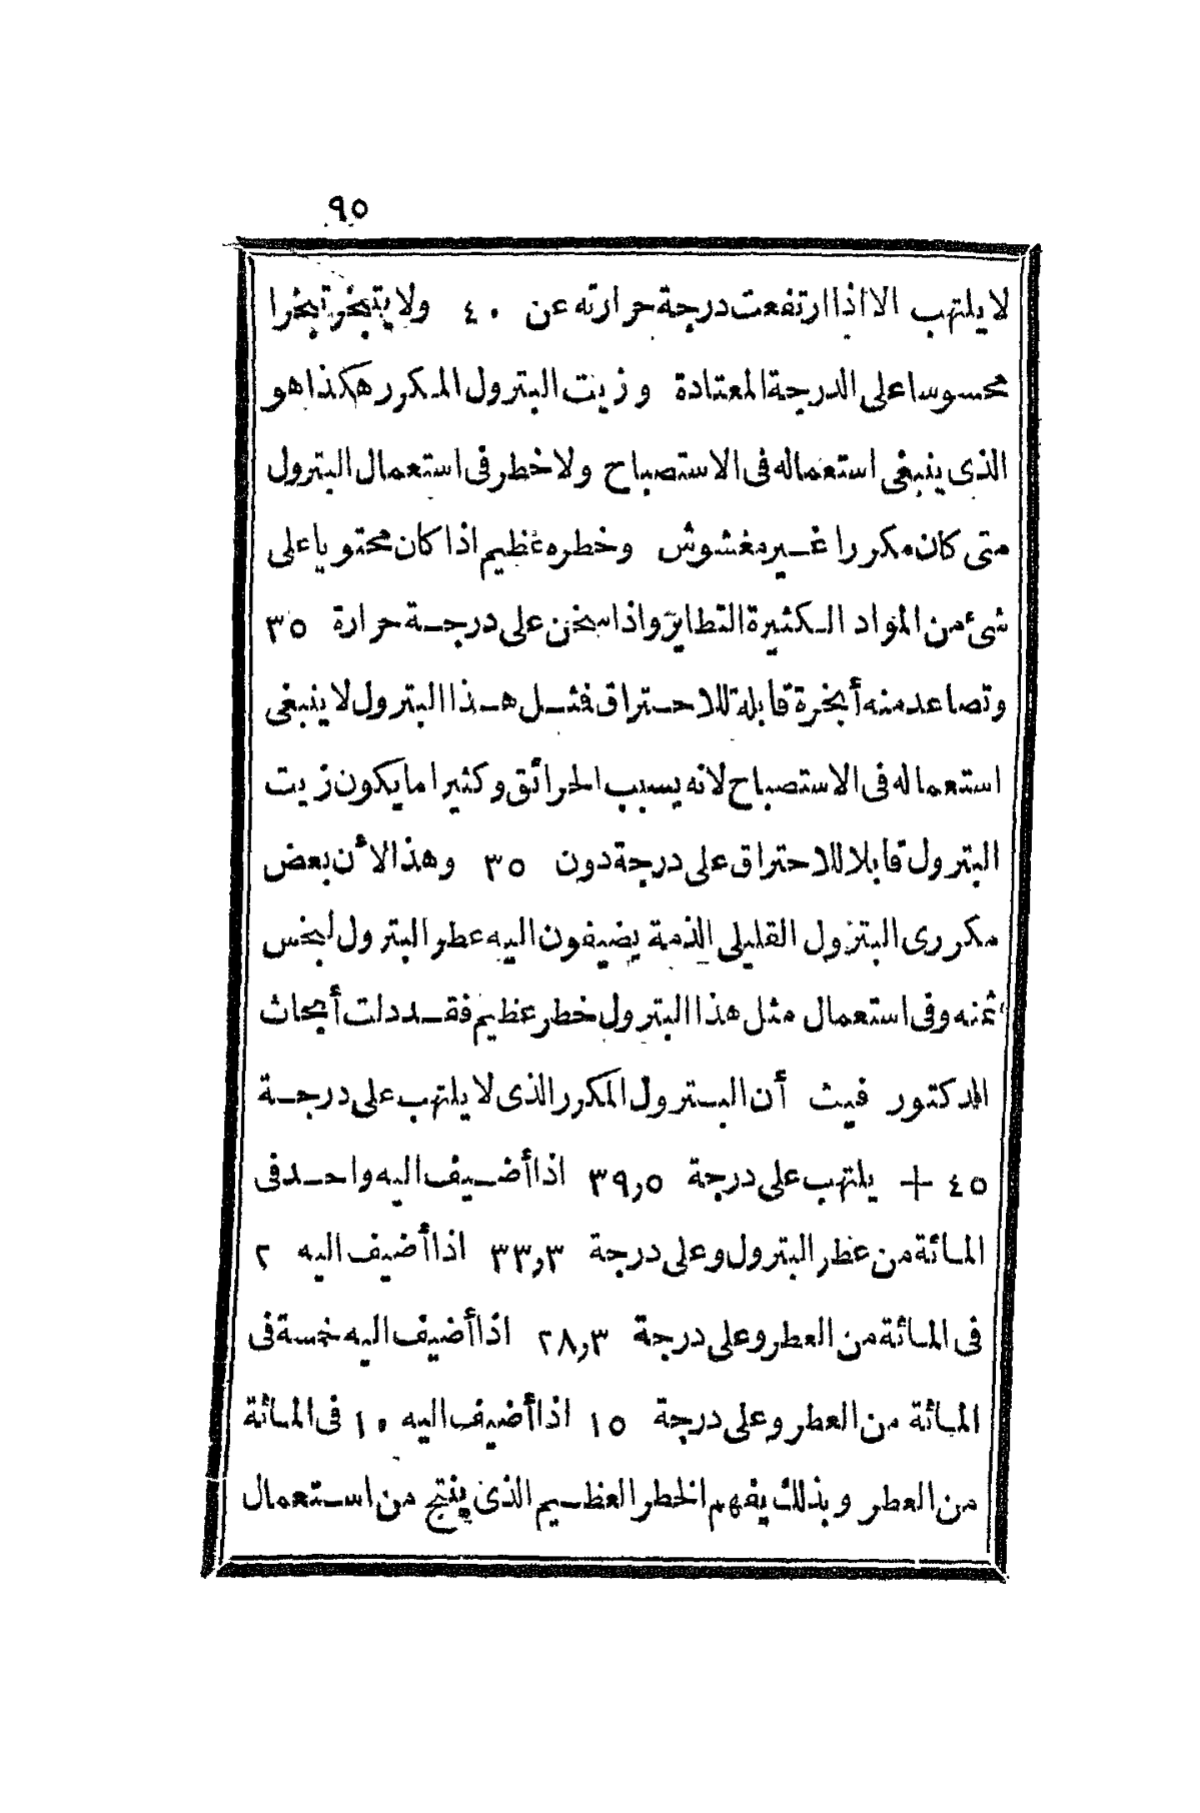 ٩٥
لا يلتهب الا اذا ارتفعت درجة حرارته عن ٤٠ ولا يتبخر تبخرا
محسوسا على الدرجة المعتادة وزيت البترول المكرر هكذا هو
الذى ينبغى استعماله فى الاستصباح ولا خطر فى استعمال البترول
متى كان مكررا غير مغشوش وخطره عظيم اذا كان محتويا على
شئ من المواد الكثيرة التطاير واذا سخن على درجة حرارة ٣٥
وتصاعد منه أبخرة قابلة للاحتراق فمثل هذا البترول لا ينبغى
استعماله فى الاستصباح لانه يسبب الحرائق وكثيرا ما يكون زيت
البترول قابلا للاحتراق على درجة دون ٣٥ وهذا لأن بعض
مكررى البترول القليلى الذمة يضيفون اليه عطر البترول لبخس
ثمنه وفى استعمال مثل هذا البترول خطر عظيم فقد دلت أبحاث
الدكتور فيث أن البترول المكرر الذى لا يلتهب على درجة
٤٥ + يلتهب على درجة ٣٩,٥ اذا أضيف اليه واحد فى
المائة من عطر البترول وعلى درجة ٣٣,٣ اذا أضيف اليه ٢
فى المائة من العطر وعلى درجة ٢٨,٣ اذا أضيف اليه خمسة فى
المائة من العطر وعلى درجة ١٥ اذا أضيف اليه ١٠ فى المائة
من العطر وبذلك يفهم الخطر العظيم الذى ينتج من استعمال